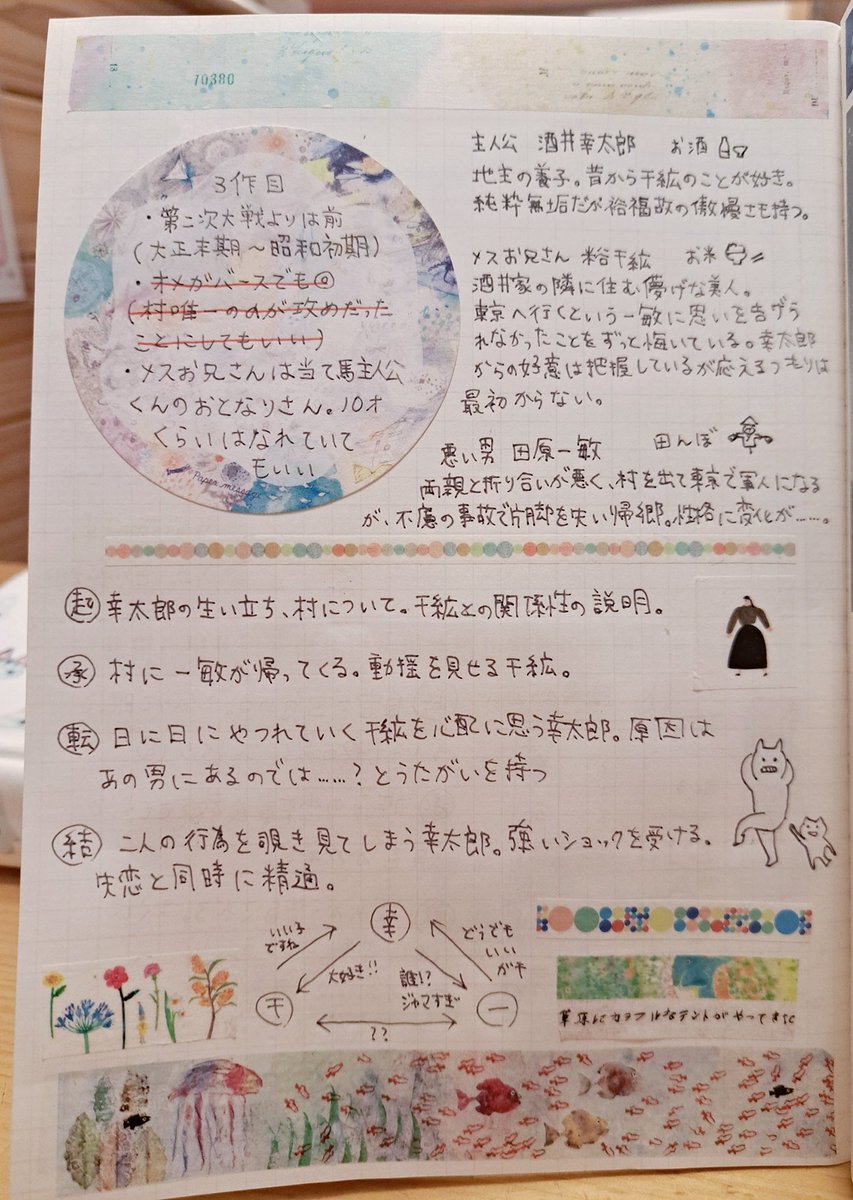 10380
3作目
・第二次大戦よりは前
(大正末期～昭和初期)
・オメガバースでも◎
(村唯一のαが攻めだった
ことにしてもいい)
・メスお兄さんは当て馬主人公
くんのおとなりさん。10才
くらいはなれていて
もいい
Paper message
主人公 酒井幸太郎 お酒
地主の養子。昔から千紘のことが好き。
純粋無垢だが裕福故の傲慢さも持つ。
メスお兄さん 米谷千紘 お米
酒井家の隣に住む儚げな美人。
東京へ行くという一敏に思いを告げら
れなかったことをずっと悔いている。幸太郎
からの好意は把握しているが応えるつもりは
最初からない。
悪い男 田原一敏 田んぼ
両親と折り合いが悪く、村を出て東京で軍人になる
が、不慮の事故で片脚を失い帰郷。性格に変化が……。
起 幸太郎の生い立ち、村について。千紘との関係性の説明。
承 村に一敏が帰ってくる。動揺を見せる千紘。
転 日に日にやつれていく千紘を心配に思う幸太郎。原因は
あの男にあるのでは……?とうたがいを持つ
結 二人の行為を覗き見てしまう幸太郎。強いショックを受ける。
失恋と同時に精通。
幸
いい子
ですね
大好き!!
誰!?
ジャマすぎ
どうでも
いい
ガキ
千
一
??